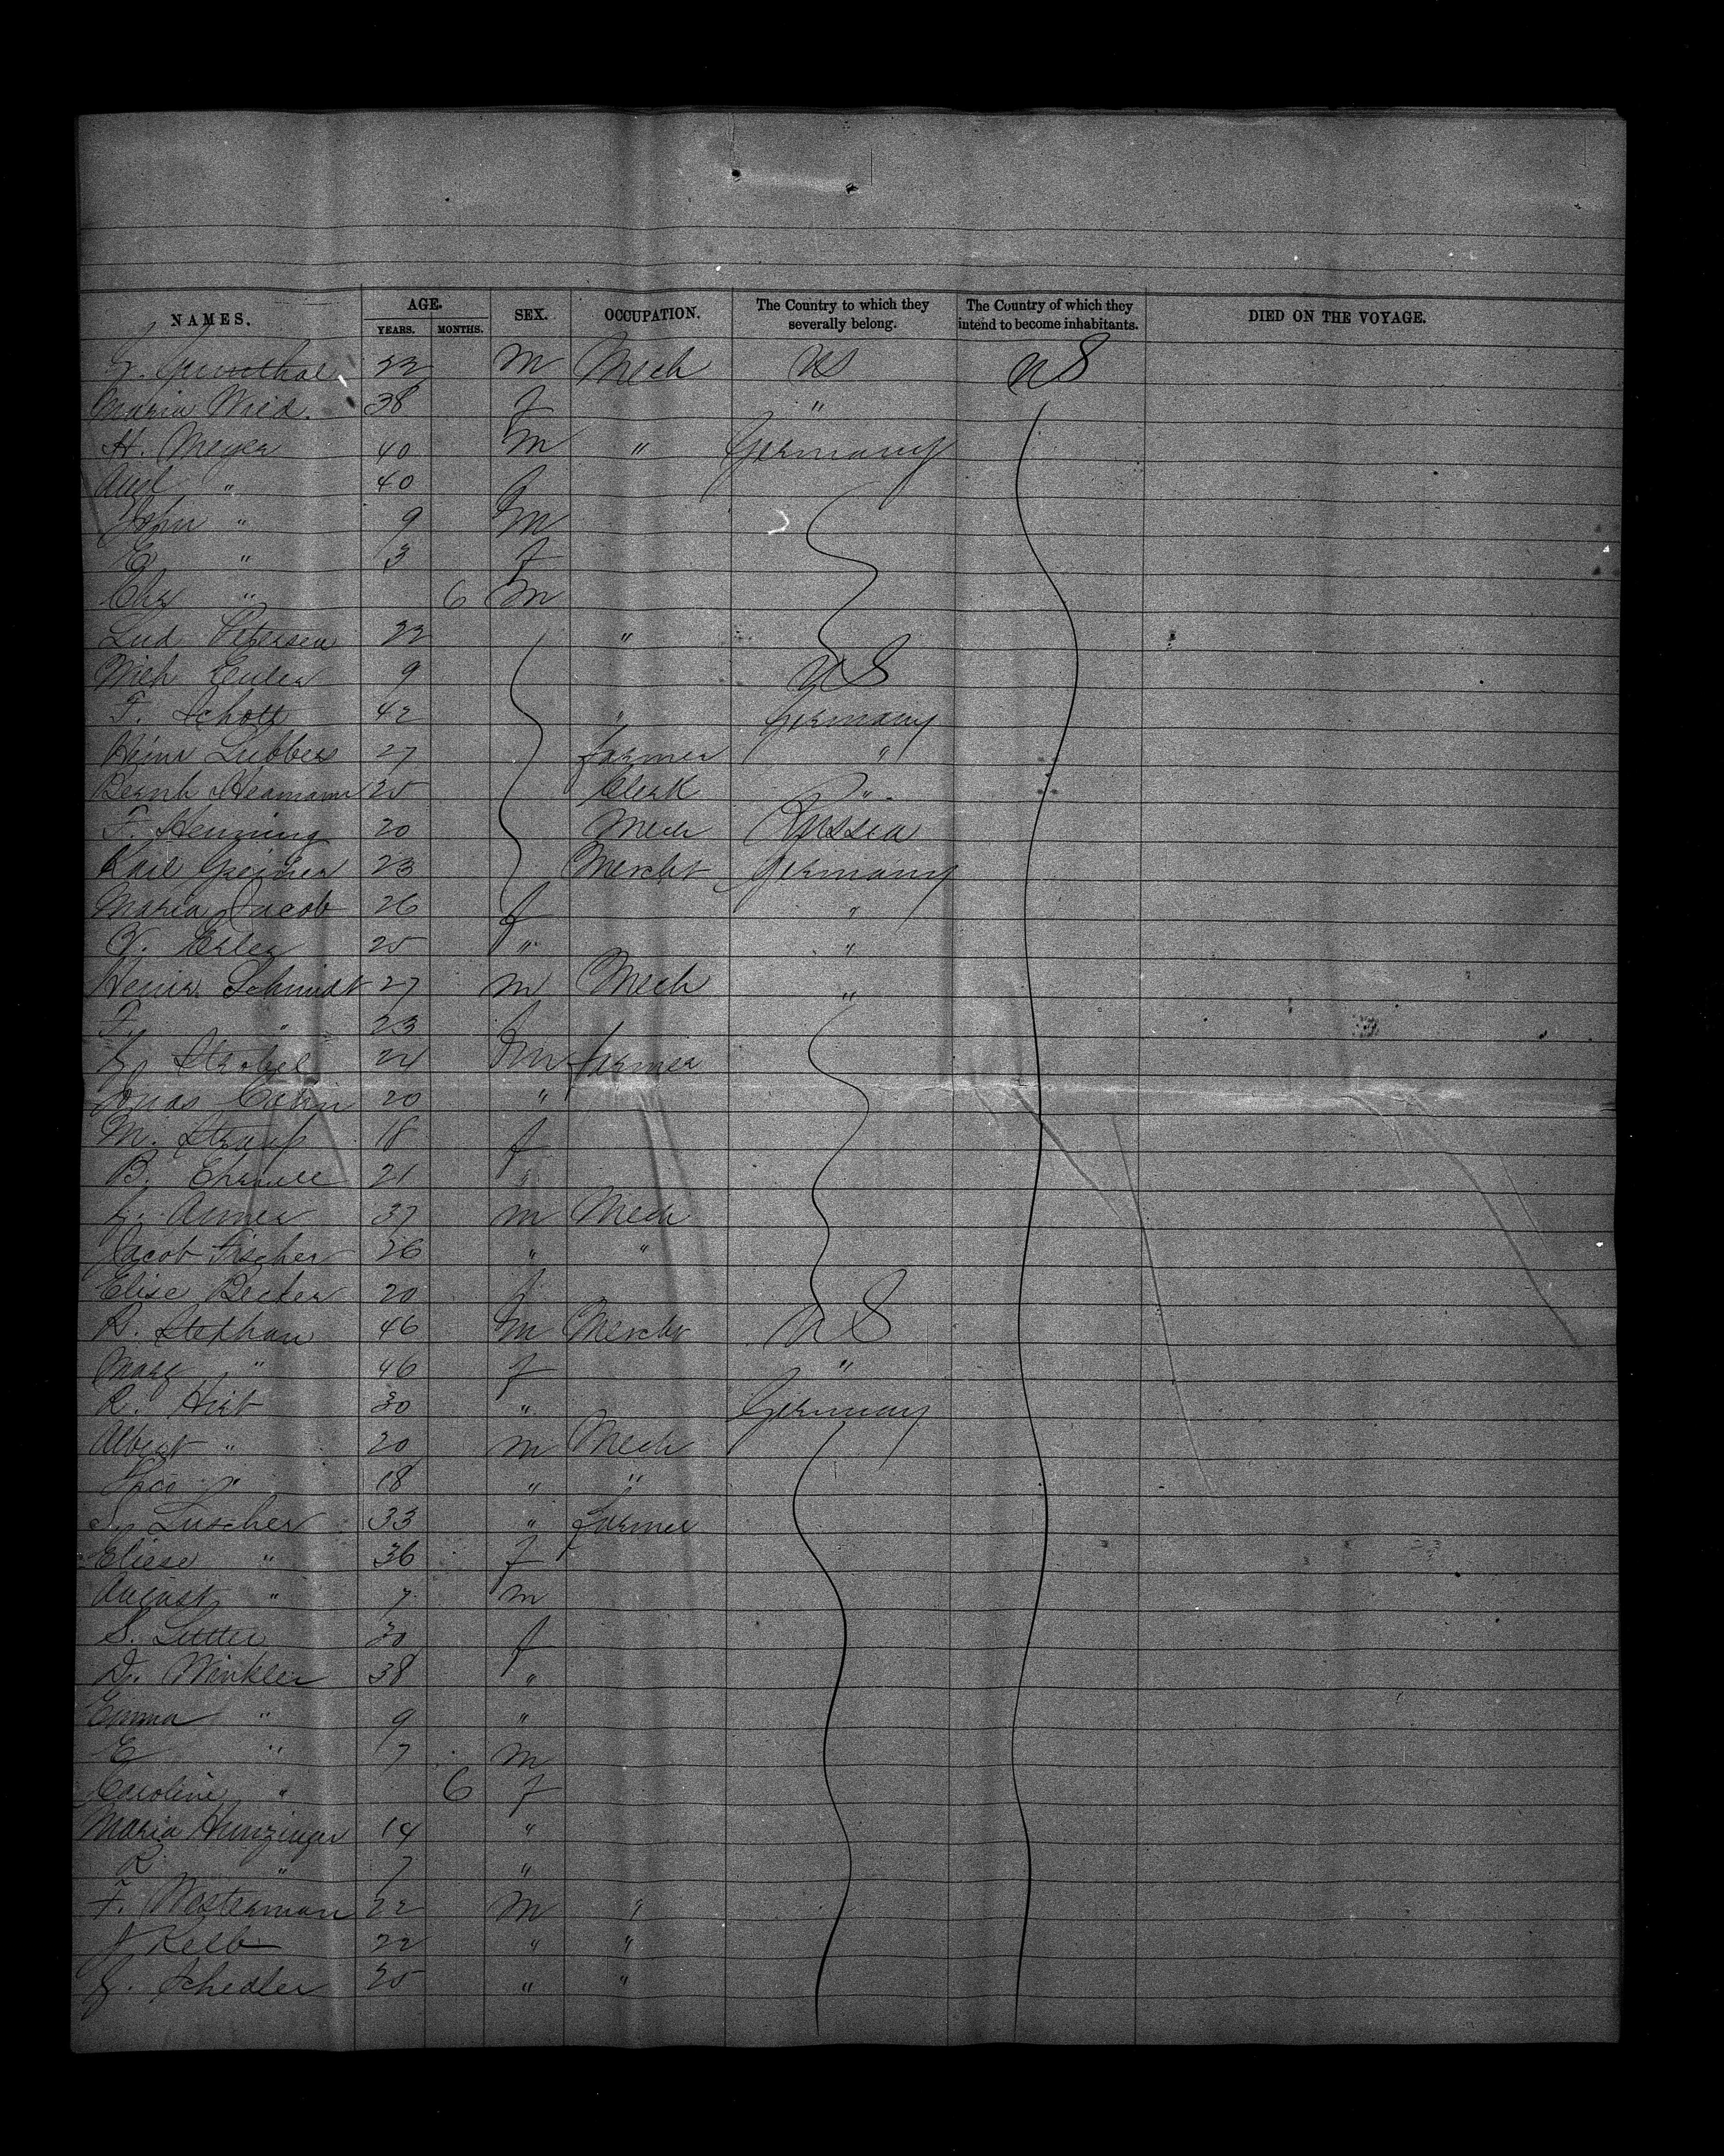 NAMES. AGE. YEARS. MONTHS. SEX. OCCUPATION. The Country to which they severally belong. The Country of which they intend to become inhabitants. DIED ON THE VOYAGE.
22 m Mech US US
Maria Wied. 38 f "
H. Meyer 40 m " Germany
" 40 f
John " 9 m
E " 3 f
Chs " 6 m
Lud Petersen 22 "
Mich Euler 9 US
F. Schott 42 " Germany
Heinr Lubbers 27 farmer "
Bernh Heamann 25 Clerk "
F. Henning 20 Mech Russia
Karl Greiner 23 Mercht Germany
Maria Jacob 26 f "
V. Erler 25 " "
Heinr. Schmidt 27 m Mech "
F. " 23 f
Strobel 24 m farmer
Jonas 20 "
M. Straup 18 f
B. 21 "
37 m Mech
Jacob Fischer 26 " "
Elise Becker 20 f
R. Stephan 46 m Mercht US
Marg " 46 f "
R. Hirt 30 " Germany
Albert " 20 m Mech
" 18 " "
S. Luscher 33 " farmer
Eliese " 36 f
August " 7 m
S. Lutter 30 f
Winkler 38 "
Emma " 9 "
E " 7 m
Caroline " 6 f
Maria Hunzinger 14 "
R " 7 "
F. Westerman 22 m "
J Kelb 22 " "
Schedler 25 " "